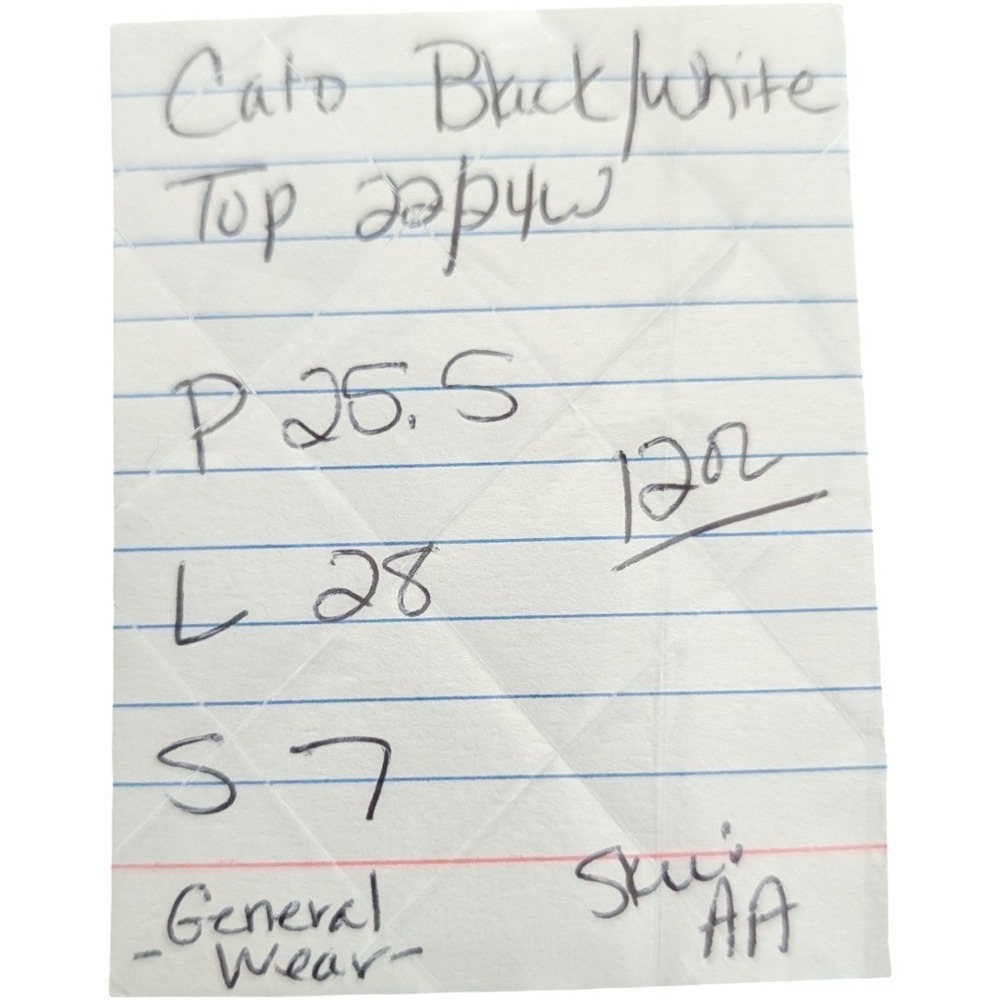 Cato Black/White
Top 22/24W
P 25.5
12oz
L 28
S 7
-General Wear-
Sku:
AA